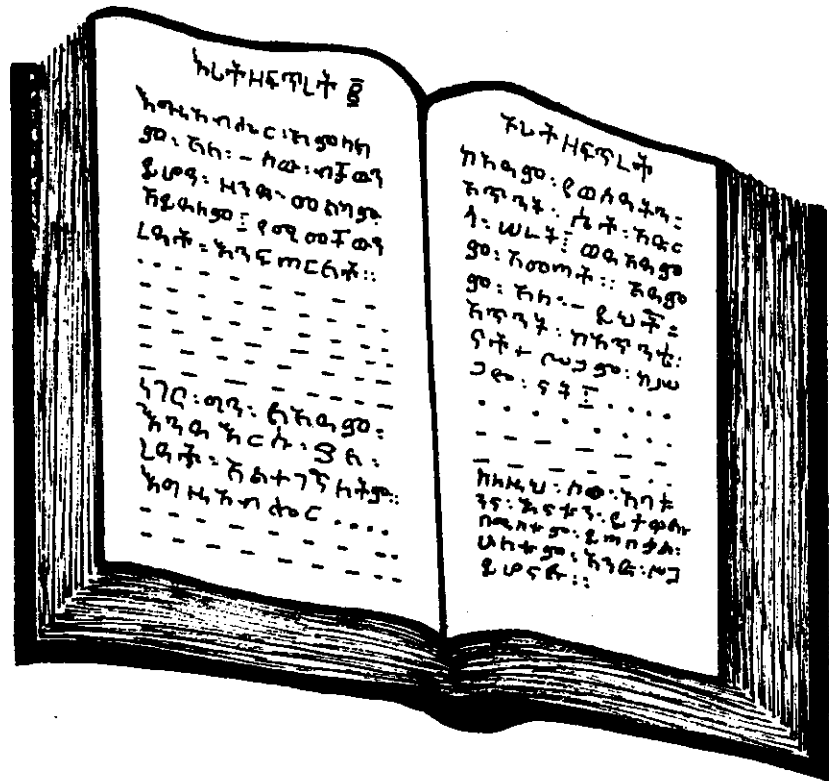 ኦሪት ዘፍጥረት ፪
እግዚአብሔር፡አምላክ
ም፡ አለ፡– ሰው፡ ብቻውን
ይሆዓ፡ ዘንድ፡ መልካም
አይዳለም፤ የሚመቸውን
ረዳት፡ እንፍጠርለት።
ነገር፡ ግን፡ ለአዳም፡
እንደ እርሱ፡ ያለ፡
ረዳት፡ አልተገኝለትም።
እግዚአብሔር ....
ኦሪት ዘፍጥረት
ከአዳም፡ የወሰዳትን፡
አጥንት፡ ሴት፡ አድር
ጎ፡ ሠራት፤ ወደ አዳም
ም፡ አመጣት። አዳም
ም፡ አለ፡– ይህች፡
አጥንት፡ ከአጥንቴ፡
ናት፡ ሥጋም፡ ከሥ
ጋዬ፡ ናት፤ ....
ከለዚህ፡ ሰው፡ አባቱ
ንና፡ እናቱን፡ ይተዋል፡
በሚስቱም፡ ይጣበቃል፡
ሁለቱም፡ አንድ፡ ሥጋ
ይሆናሉ።